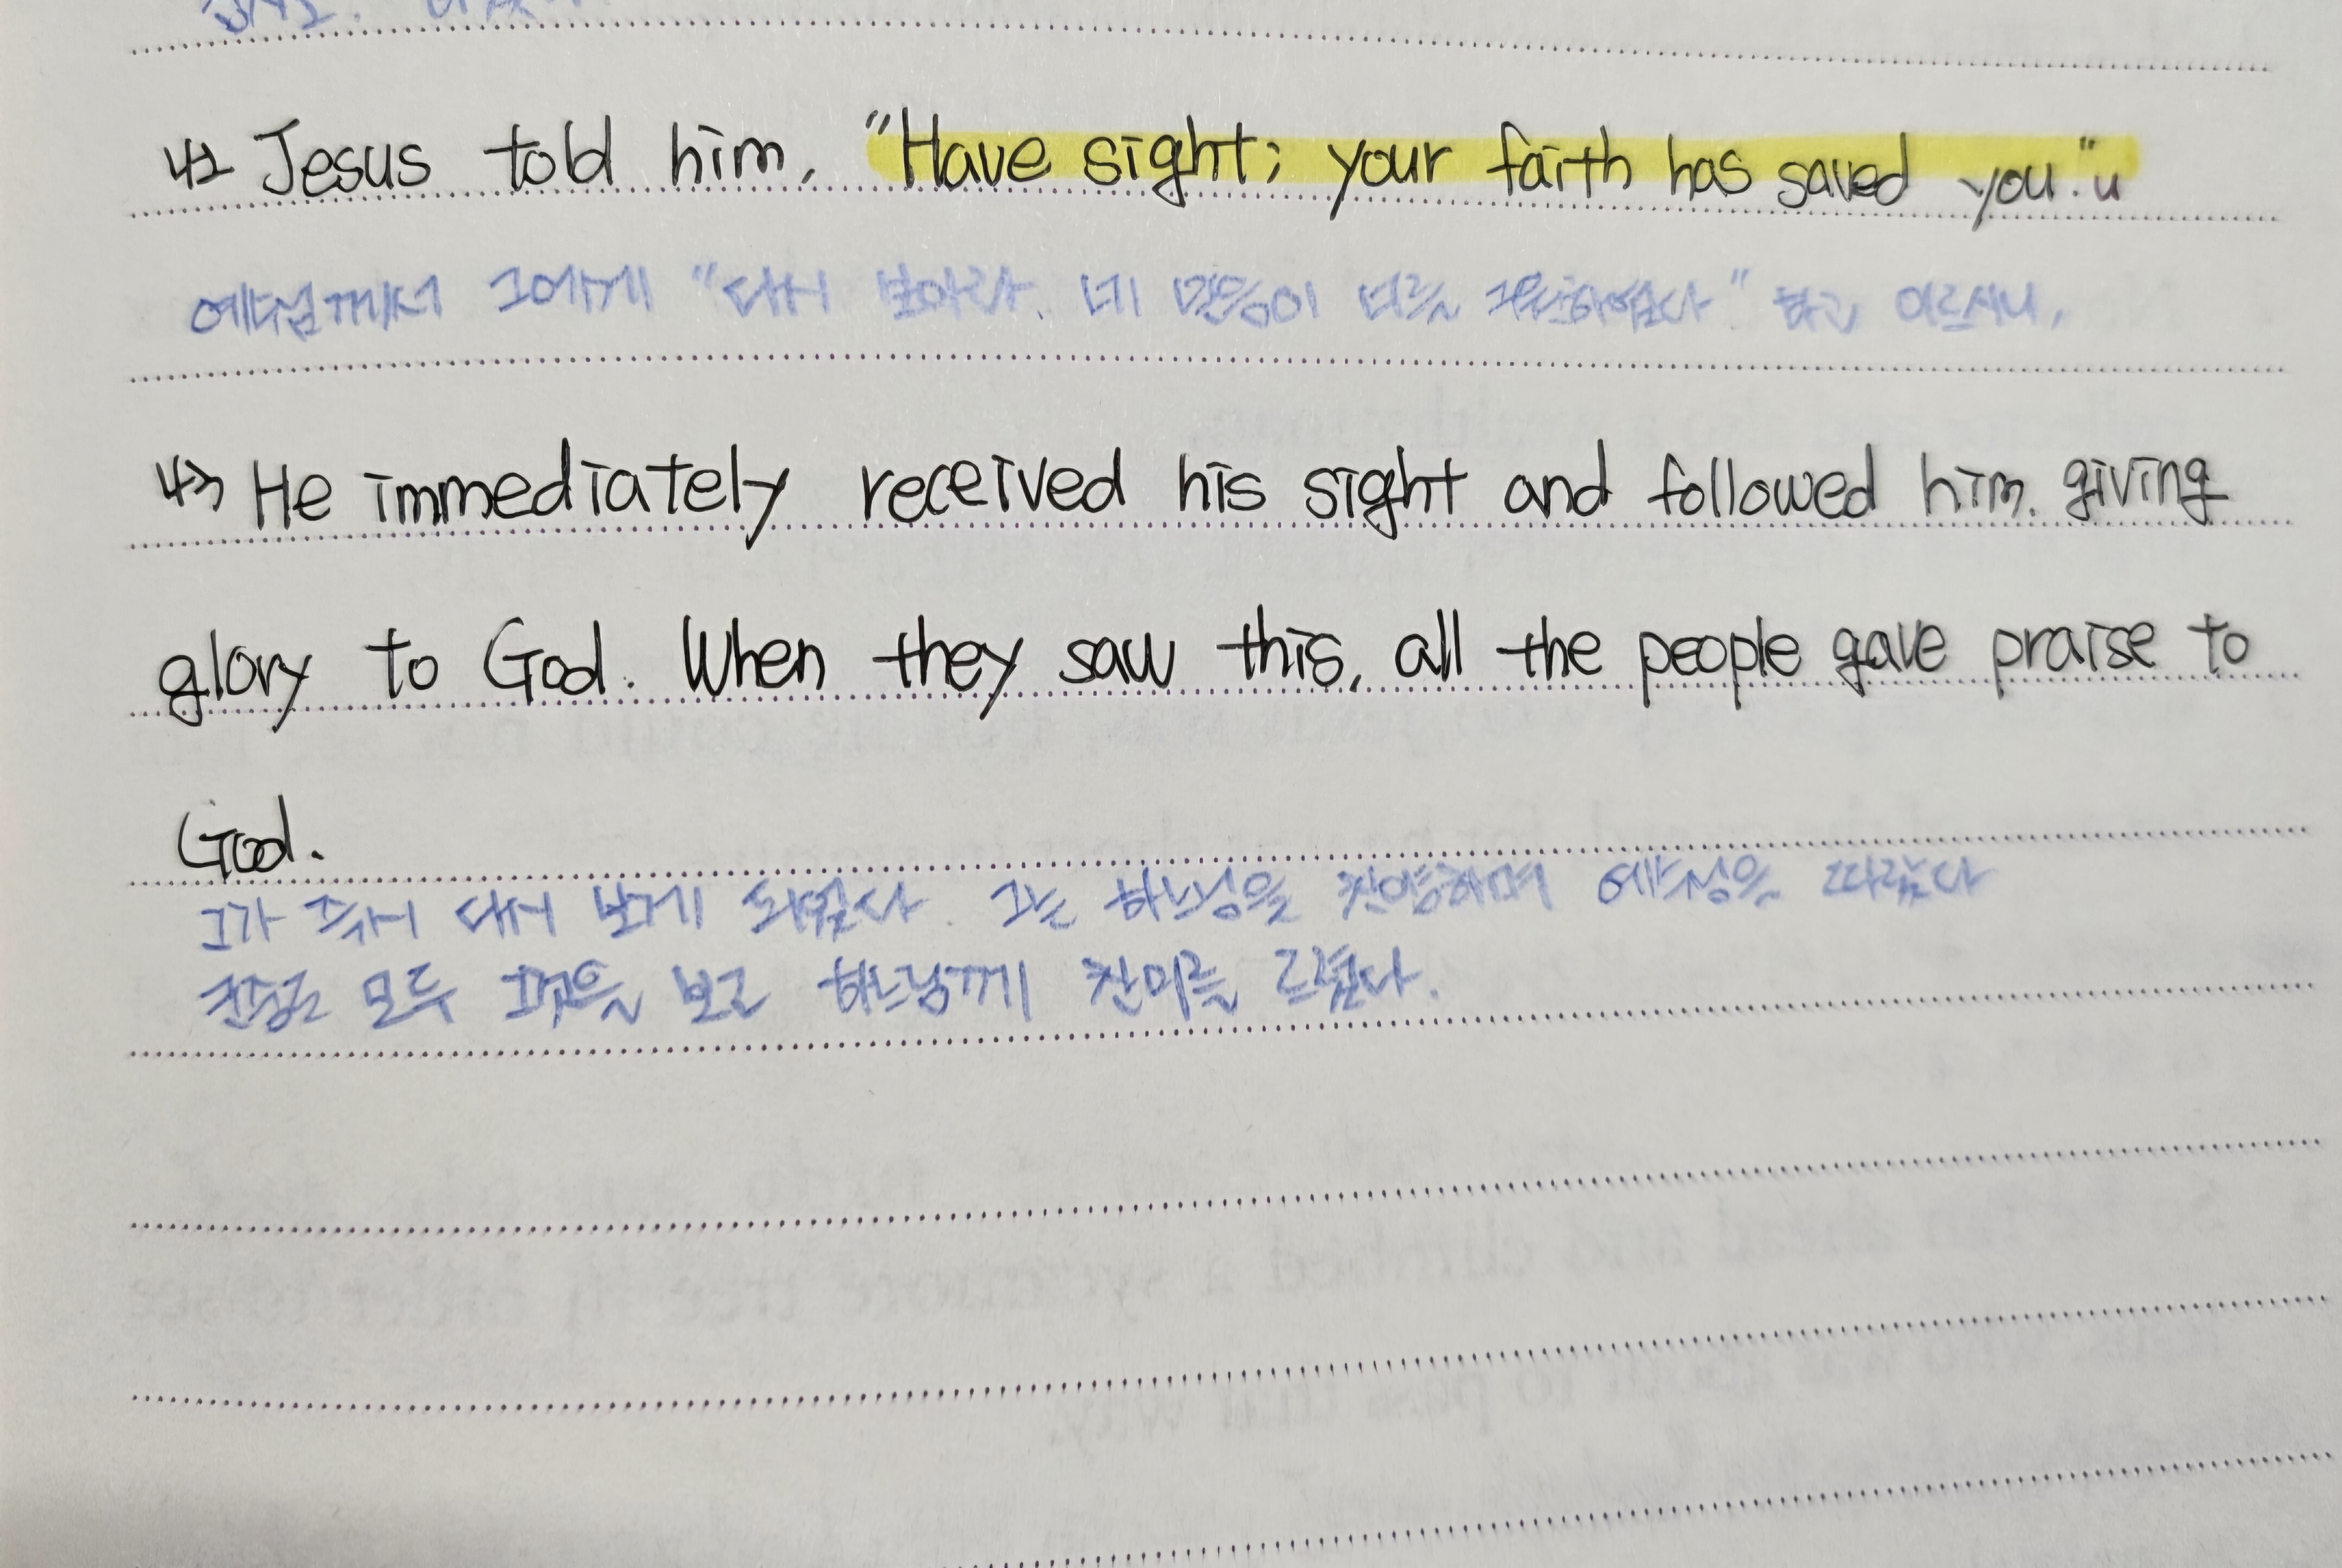 42 Jesus told him, "Have sight; your faith has saved you."
예수님께서 그에게 "다시 보아라. 네 믿음이 너를 구원하였다" 하고 이르시니,
43 He immediately received his sight and followed him. giving
glory to God. When they saw this, all the people gave praise to
God.
그가 즉시 다시 보게 되었다. 그는 하느님을 찬양하며 예수님을 따랐다
군중도 모두 그것을 보고 하느님께 찬미를 드렸다.